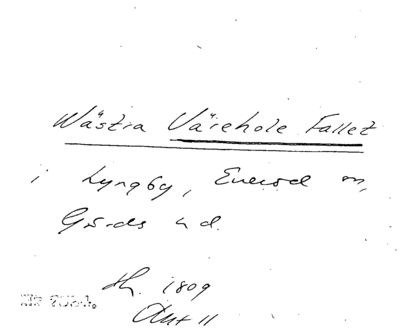 Wästra Värehole Fallet
i Lyngby, Everöd m,
Gärds hd.
Sh. 1809
Akt 11